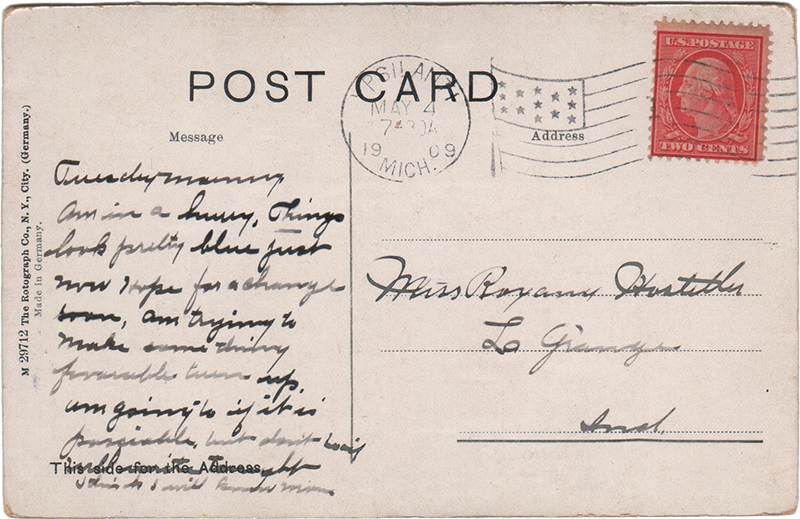 POST CARD
YPSILANTI
MAY 4
7-30A
1909
MICH.
U.S. POSTAGE
TWO CENTS
Message
Address
M 29712 The Rotograph Co., N. Y., City. (Germany.)
Made in Germany.
Tuesday morning
Am in a hurry, Things
look pretty blue just
now hope for a change
soon, am trying to
make some thing
favorable turn up.
am going to if it is
possiable, but don't
This side for the Address.
I think I will know more
Miss Roxany Hostetler
La Grange
Ind.